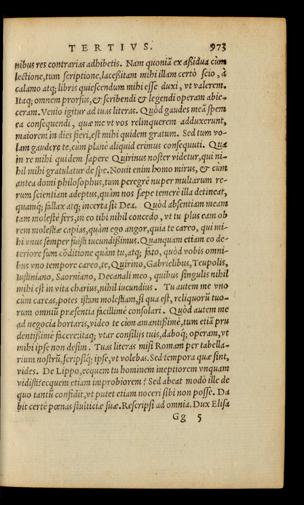 TERTIVS. 973
nibus res contrarias adhibetis. Nam quoniã ex aßidua cùm
lectione, tum scriptione, lacesitam mihi illam certò scio, à
calamo atq; libris quiescendum mihi esse duxi, vt valerem.
Itaq; omnem prorsus, & scribendi & legendi operam abie-
ceram. Venio igitur ad tuas literas. Quòd gaudes meã spem
ea consequendi, quæ me vt vos relinquerem adduxerunt,
maiorem in dies fieri, est mihi quidem gratum. Sed tum vo-
lam gaudere te, cùm planè aliquid erimus consequuti. Qua
in re mihi quidem sapere Quirinus noster videtur, qui ni-
hil mihi gratulatur de spe. Nouit enim homo mirus, & cùm
antea domi philosophus, tum peregrè nuper multarum re-
rum scientiam adeptus, quàm nos sæpe temerè illa detineat,
quamq; fallax atq; incerta sit Dea. Quòd absentiam meam
tam molestè fers, in eo tibi nihil concedo, vt tu plus eam ob
rem molestiæ capias, quàm ego angor, quia te careo, qui mi-
hi vnus semper fuisti iucundißimus. Quanquam etiam eo de-
teriore sum cõditione quàm tu, atq; fato, quòd vobis omni-
bus vno tempore careo, te, Quirino, Gabrielibus, Treupolis,
Iustiniano, Saorniano, Decanali meo, quibus singulis nihil
mihi est in vita charius, nihil iucundius. Tu autem me vno
cùm careas, potes istam molestiam, si qua est, reliquorũ tuo-
rum omniũ præsentia facillimè consolari. Quòd autem me
ad negocia hortaris, video te cùm amantißimè, tum etiã pru
dentißimè facere: itaq; vtar consilijs tuis, daboq; operam, vt
mihi ipse non desim. Tuas literas misi Romam per tabella-
rium nostrũ, scripsiq; ipse, vt volebas. Sed tempora quæ sint,
vides. De Lippo, ecquem tu hominem ineptiorem vnquam
vidisti? ecquem etiam improbiorem? Sed abeat modò ille de
quo tantũ confidit, vt putet etiam noceri sibi non posse. Da
bit certè pœnas stultitiæ suæ. Rescripsi ad omnia. Dux Elisa
Gg 5